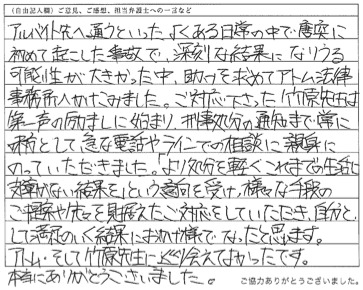 (自由記入欄)ご意見、ご感想、担当弁護士への一言など
アルバイト先へ通うといったよくある日常の中で唐突に
初めて起こした事故で、深刻な結果になりうる
可能性が大きかった中、助けを求めてアトム法律
事務所へかけこみました。ご対応下さった竹原先生は
第一声の励ましに始まり、刑事処分の通知まで常に
味方として急な電話やラインでの相談に親身に
のっていただきました。「より処分を軽くこれまでの生活に
支障がない結果を」という意向を受け、様々な手段の
ご提案や先を見据えたご対応をしていただき、自分と
して満足のいく結果におかげ様でなったと思います。
アトム、そして竹原先生に出会えてよかったです。
本当にありがとうございました。
ご協力ありがとうございました。